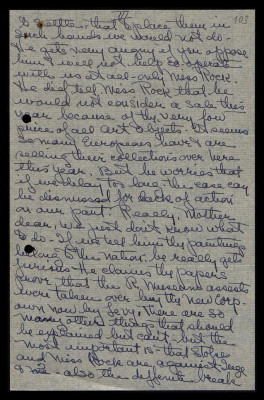 103
to do this - that to place them in
such hands we would not do -
He gets very angry if you oppose
him & will not help co-operate
with us at all - only Miss Rock.
He did tell Miss Rock that he
would not consider a sale this
year because of the very low
prices of all Art objects. It seems
so many Europeans have are
selling their collections over here
this year. But he worries that
if we delay too long - the case can
be dismissed for lack of action
on our part. Really, Mother
dear, we just don't know what
to do - If we tell him the paintings
belong to the nation, he really gets
furious. He claims the papers
prove that the R. Museum assets
were taken over by the new Corp.
own now by Levy. There are so
many other things that should
be explained but can't - but the
most important is - that Stokes
and Miss Rock are against Inge
& me - also the definite break